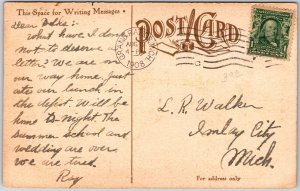 This Space for Writing Messages
Dear Folks:-
What have I done
not to deserve a
letter? We are on
our way home. Just
ate our lunch in
the depot. Will be
home to night. The
summer school and
wedding are over
we are tired.
Ray
POST CARD
GRAND
AUG
4
1908
L. R. Walker
Imlay City
Mich.
For address only